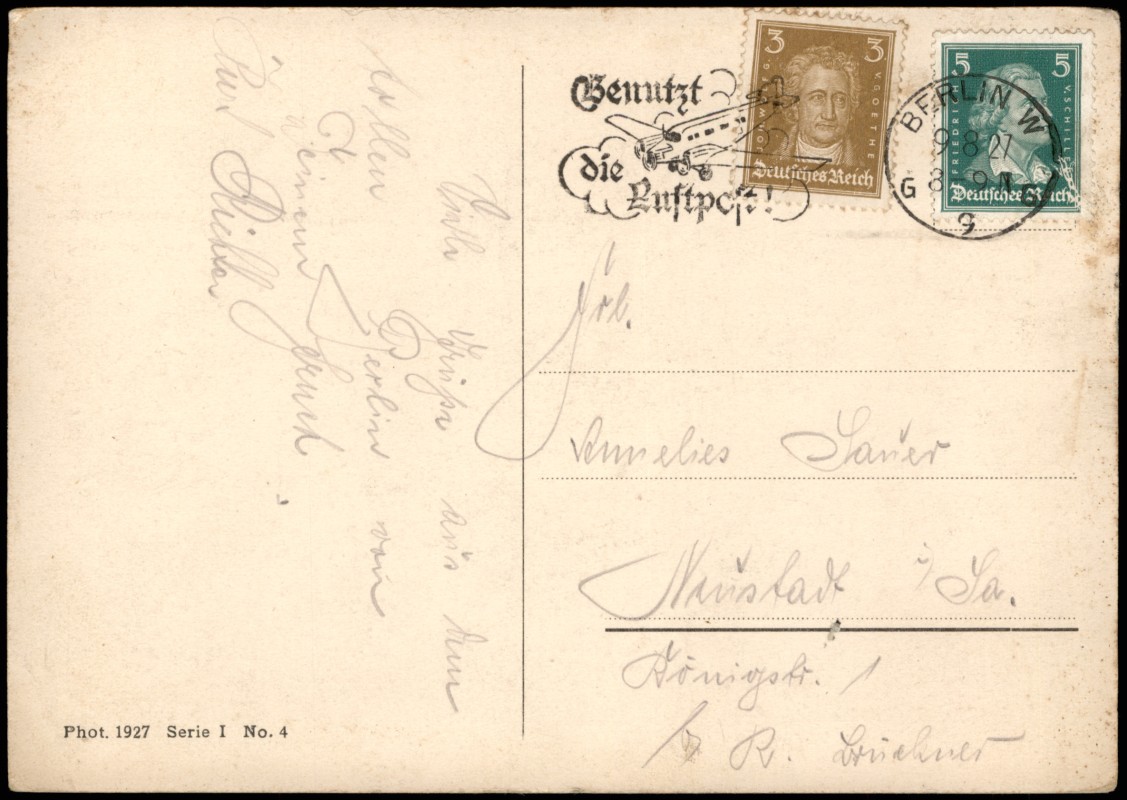 Viele Grüße aus dem
tollen Berlin von
Deinem Freund
Kurt Richter
Phot. 1927 Serie I No. 4
Benutzt
die
Luftpost!
3 3
JOH. WOLFG. V. GOETHE
Deutsches Reich
5 5
FRIEDRICH V. SCHILLER
Deutsches Reich
BERLIN W
9.8.27
8-9 N
G 9 G
Frl.
Annelies Sauer
Neustadt i/Sa.
Königstr. 1
b. R. Bruckner